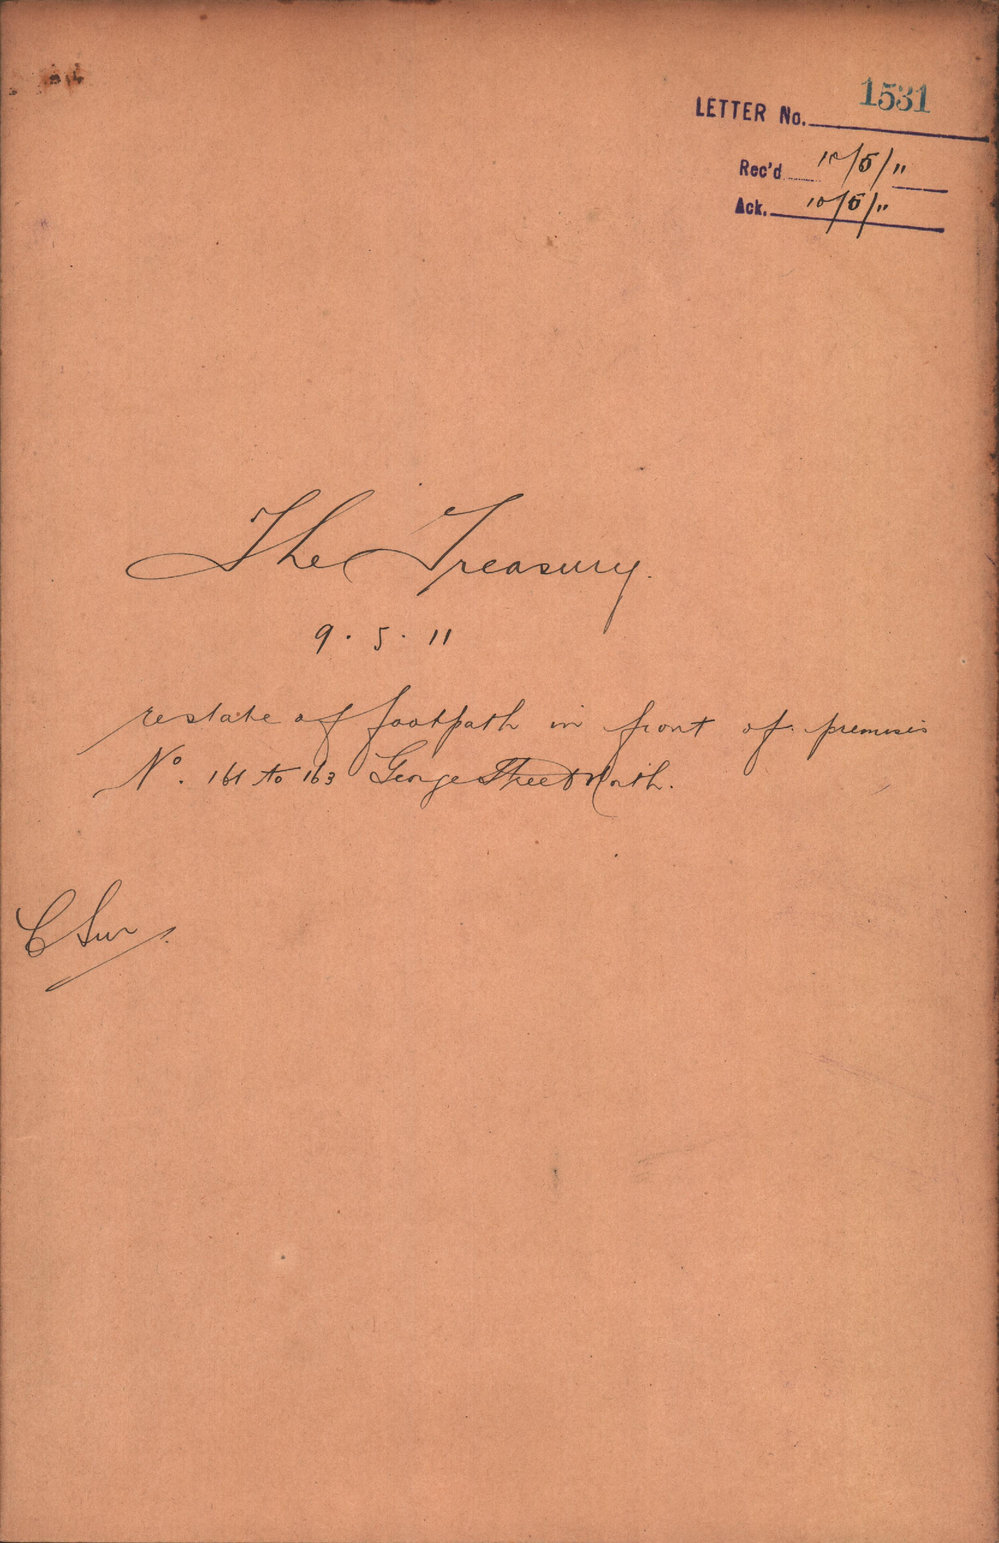 LETTER No. 1531
Rec'd 10/5/11
Ack. 10/5/11
The Treasury.
9 . 5 . 11
re state of footpath in front of premises
No. 161 to 163 George Street North.
C Sur